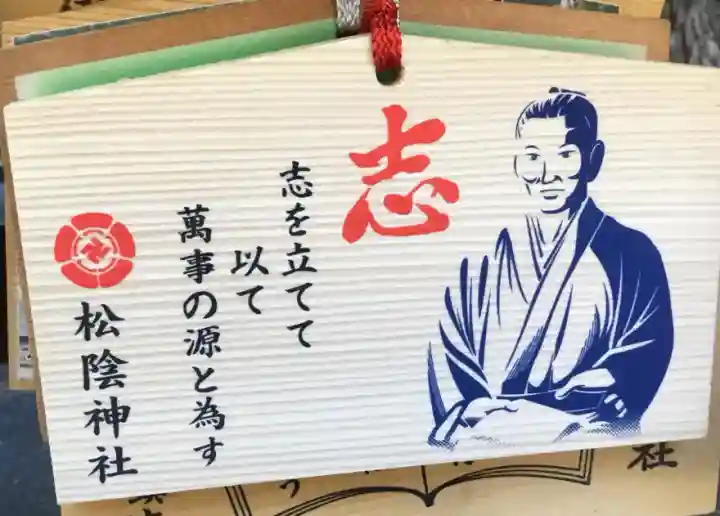 志
志を立てて
以て
萬事の源と為す
松陰神社
社